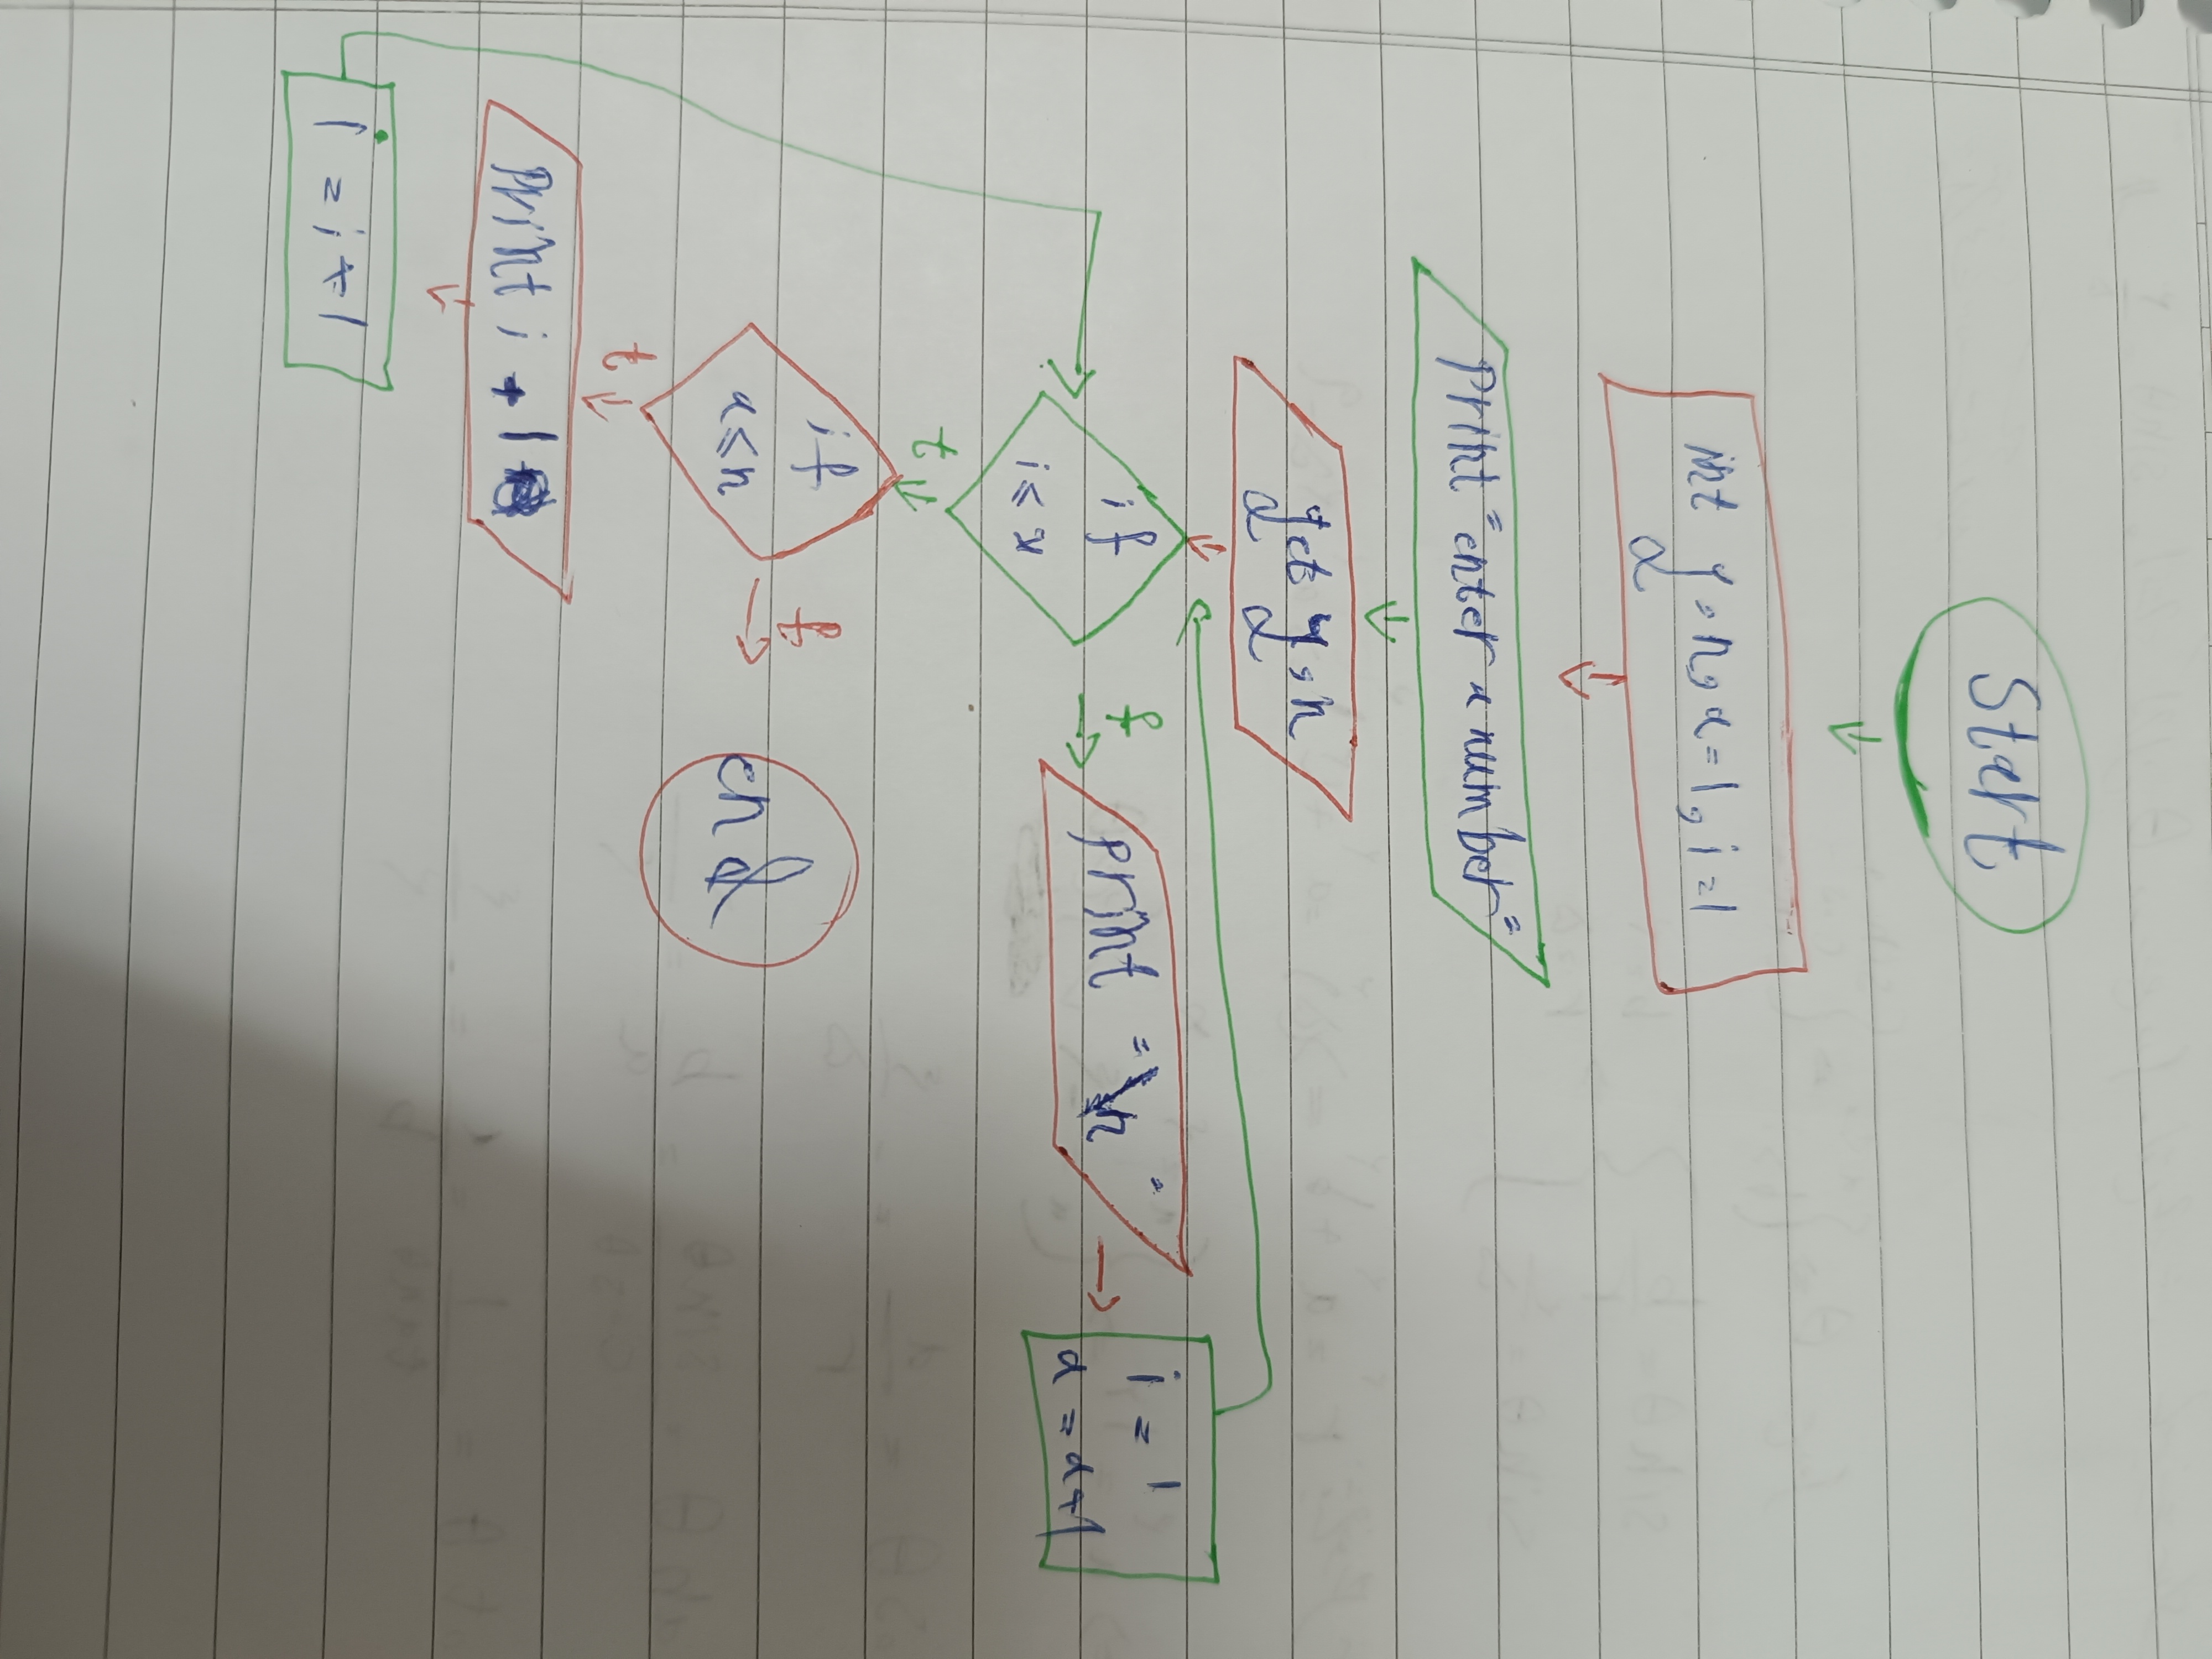 Start
int y, n, a=1, i=1
print "enter a number"
get y, n
if
i ≤ y
f
print "\n"
i = 1
a = a+1
t
if
a ≤ n
f
end
t
print i + 1
i = i+1